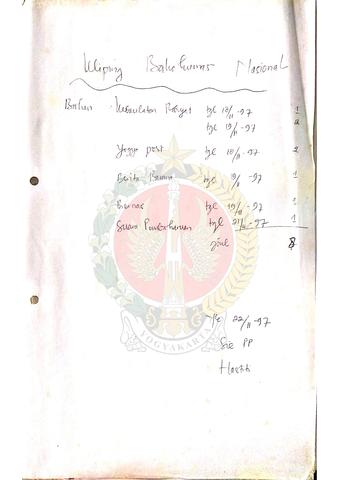 Kliping Bakohumas Nasional
Bahan : Kedaulatan Rakyat tgl 18/11-97 1
tgl 19/11-97 2
Yogya post tgl 18/11-97 2
Berita Buana tgl 19/11-97 1
Bernas tgl 19/11-97 1
Suara Pembaharuan tgl 21/11-97 1
8
22/11-97
Sie PP
YOGYAKARTA